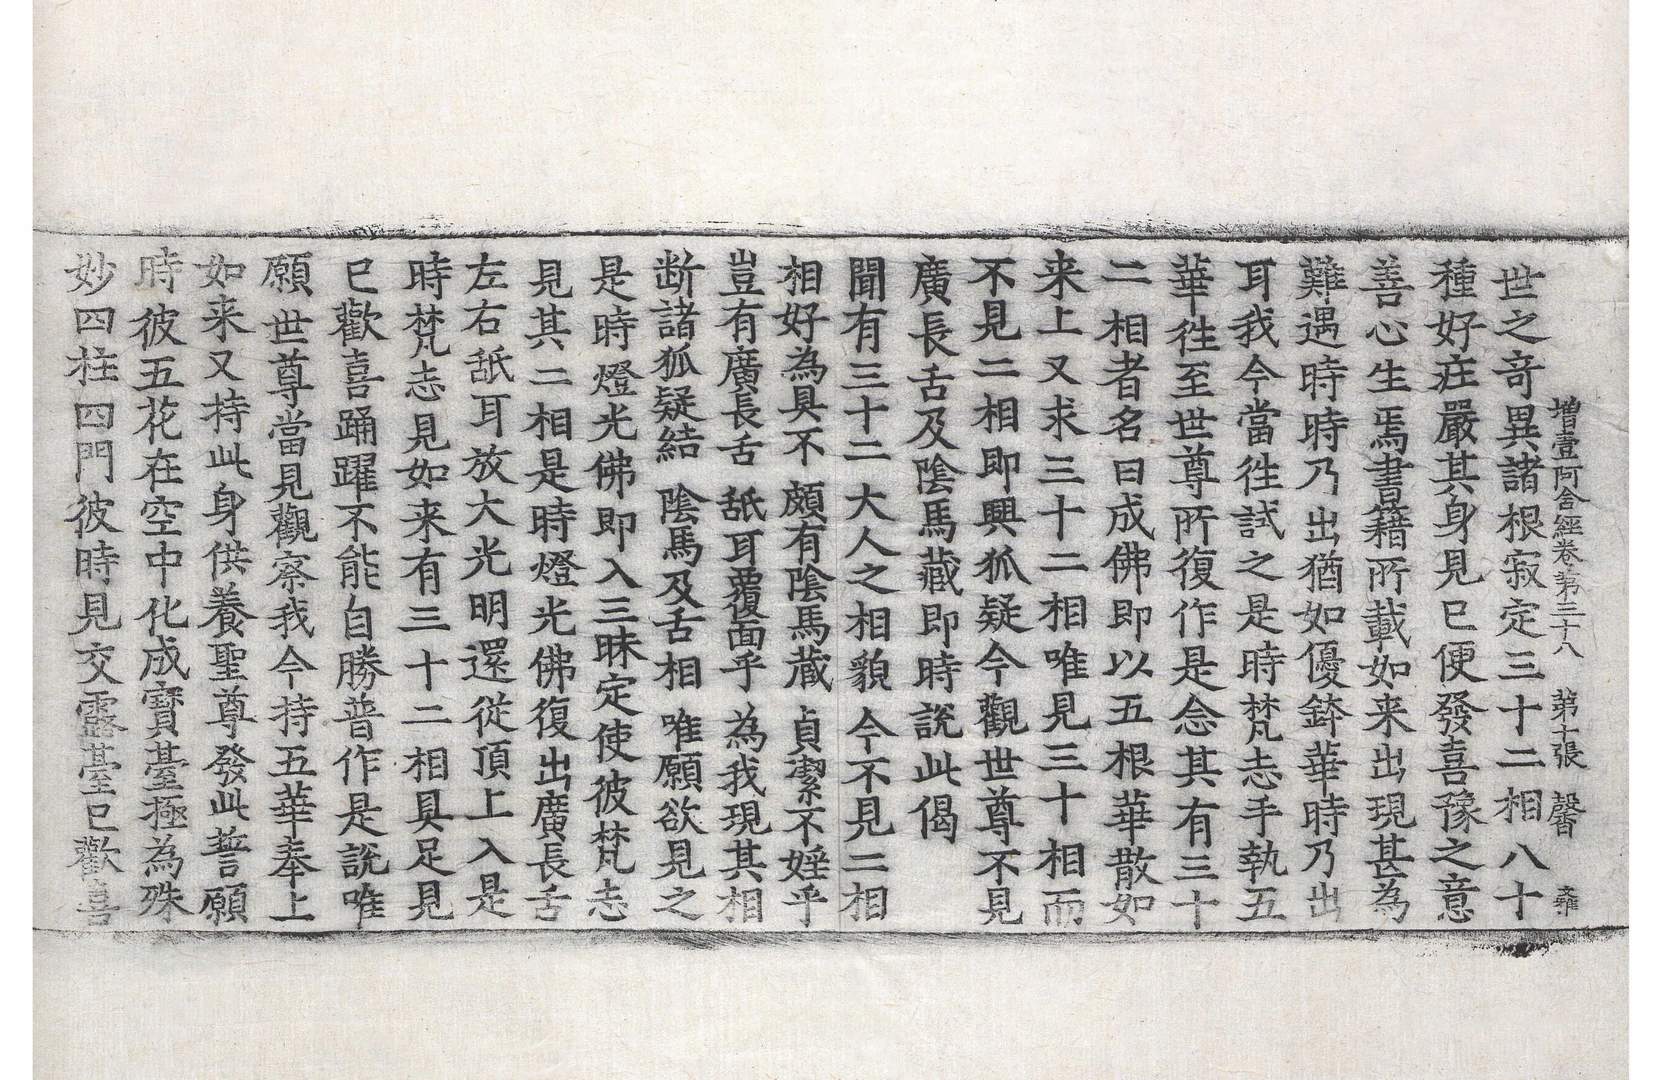 增壹阿含經卷第三十八　第十張　馨
世之奇異諸根寂定三十二相八十
種好庄嚴其身見已便發喜豫之意
善心生焉書籍所載如来出現甚為
難遇時時乃出猶如優鉢華時乃出
耳我今當往試之是時梵志手執五
華往至世尊所復作是念其有三十
二相者名曰成佛即以五根華散如
来上又求三十二相唯見三十相而
不見二相即興狐疑今觀世尊不見
廣長舌及陰馬藏即時說此偈
聞有三十二　大人之相貌　今不見二相
相好為具不　頗有陰馬藏　貞潔不婬乎
豈有廣長舌　舐耳覆面乎　為我現其相
断諸狐疑結　陰馬及舌相　唯願欲見之
是時燈光佛即入三昧定使彼梵志
見其二相是時燈光佛復出廣長舌
左右舐耳放大光明還從頂上入是
時梵志見如来有三十二相具足見
已歡喜踊躍不能自勝普作是說唯
願世尊當見觀察我今持五華奉上
如来又持此身供養聖尊發此誓願
時彼五花在空中化成寶臺極為殊
妙四柱四門彼時見交露臺已歡喜